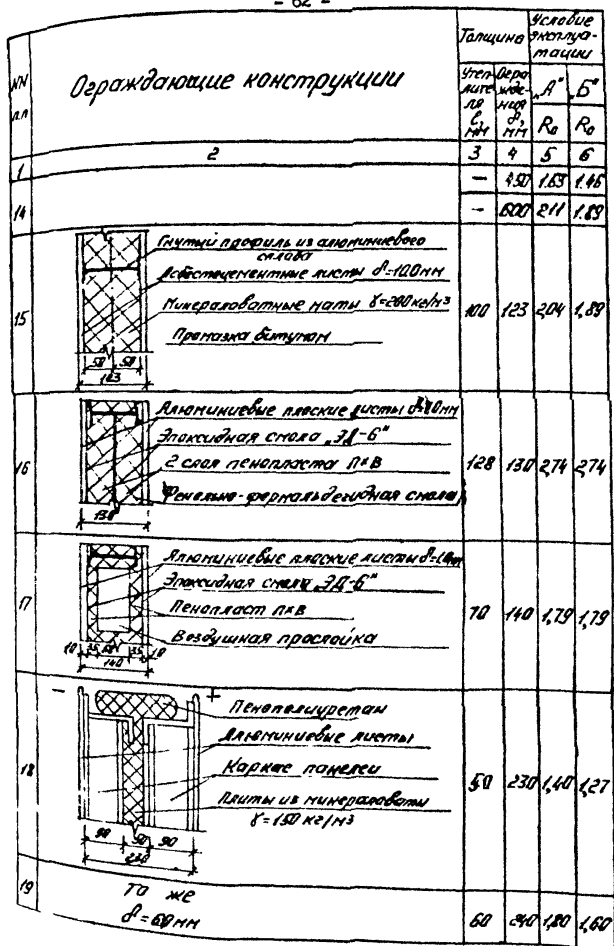 - 62 -
NN пп
Ограждающие конструкции
Толщина
Условие эксплуатации
Утеплителя ℓ, мм
Ограждения δ, мм
„А" „Б"
R₀ R₀
1 2 3 4 5 6
- 490 1.63 1.46
14 - 600 2.11 1.89
15
Гнутый профиль из алюминиевого сплава
Асбестоцементные листы δ=10,0 мм
Минераловатные маты γ=200 кг/м³
Промазка битумом
50 50
123
100 123 2,04 1,89
16
Алюминиевые плоские листы
Эпоксидная смола „ЭД-6"
2 слоя пенопласта ПХВ
Фенольно-формальдегидная смола
130
128 130 2,74 2,74
17
Алюминиевые плоские листы
Эпоксидная смола „ЭД-6"
Пенопласт ПХВ
Воздушная прослойка
1,0 35 35 1,0
140
70 140 1,79 1,79
18
- +
Пенополиуретан
Алюминиевые листы
Каркас панелей
Плиты из минераловаты
γ=150 кг/м³
90 50 90
230
50 230 1,40 1,27
19
То же
δ=60 мм
60 240 1,80 1,60